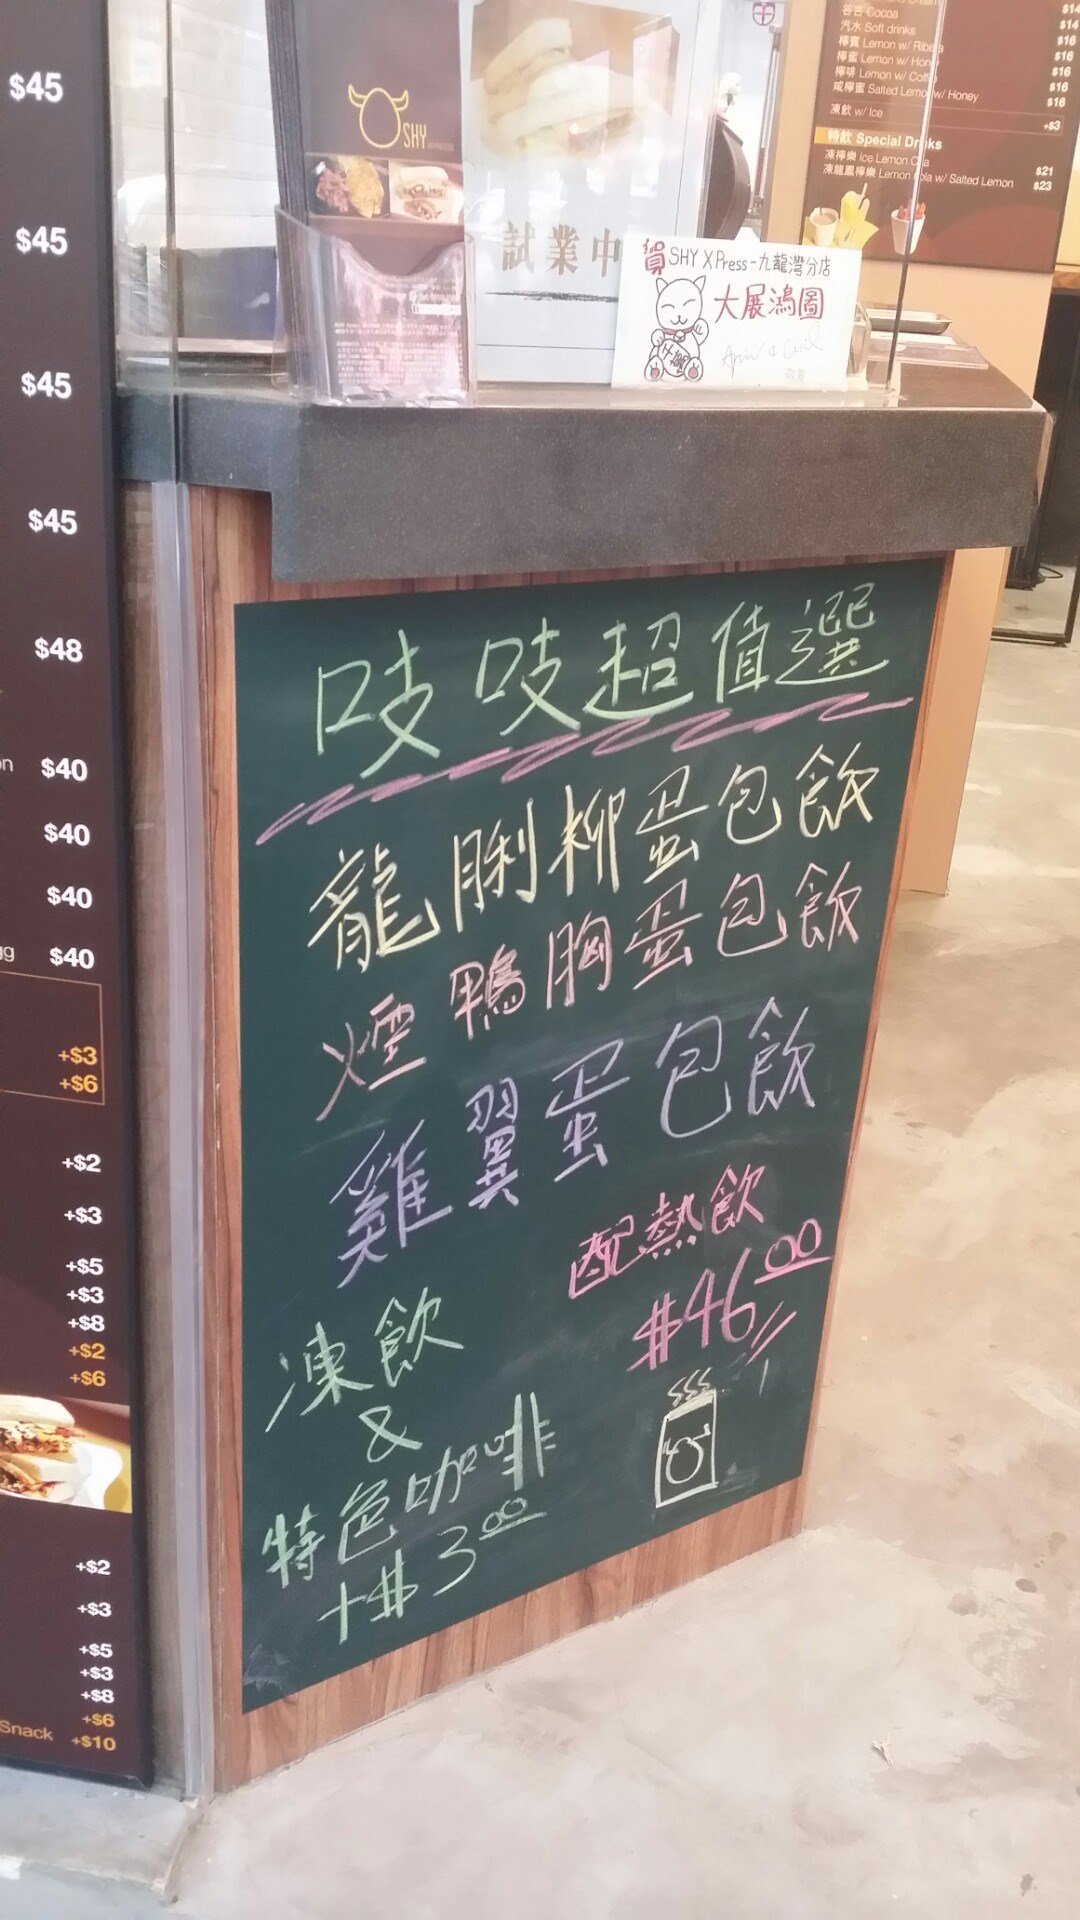 $45
$45
$45
$45
$48
$40
$40
$40
$40
+$3
+$6
+$2
+$3
+$5
+$3
+$8
+$2
+$6
+$2
+$3
+$5
+$3
+$8
+$6
Snack +$10
SHY
試業中
賀 SHY XPress-九龍灣分店
大展鴻圖
谷古 Cocoa $14
汽水 Soft drinks $14
檸賓 Lemon w/ Ribena $16
檸蜜 Lemon w/ Honey $16
檸啡 Lemon w/ Coffee $16
咸檸蜜 Salted Lemon w/ Honey $16
$16
凍飲 w/ Ice +$3
特飲 Special Drinks
凍檸樂 Ice Lemon Cola $21
凍龍鳳檸樂 Lemon Cola w/ Salted Lemon $23
吱吱超值選
龍脷柳蛋包飯
煙鴨胸蛋包飯
雞翼蛋包飯
配熱飲
$46.00
凍飲
&
特色咖啡
+$3.00